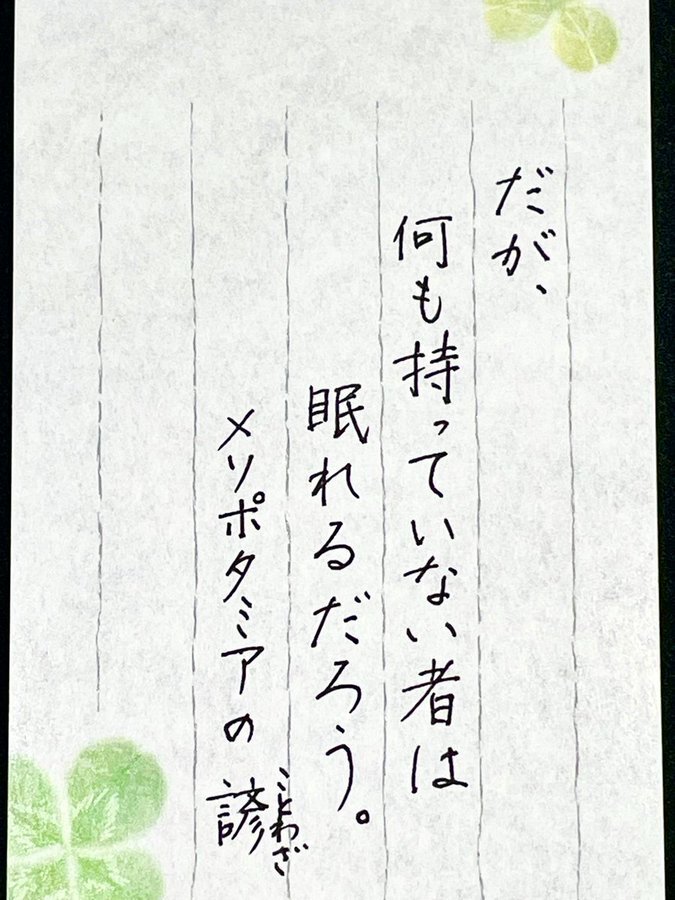 だが、
何も持っていない者は
眠れるだろう。
メソポタミアの諺
ことわざ